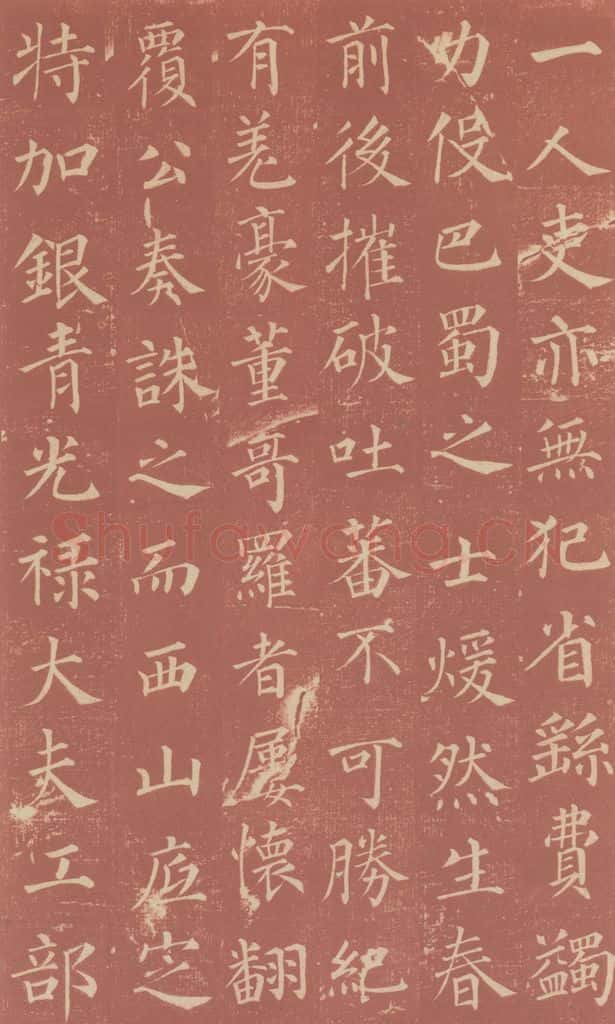 一人吏亦無犯省繇費蠲
力伇巴蜀之士煖然生春
前後摧破吐蕃不可勝紀
有羌豪董哥羅者屢懷翻
覆公奏誅之而西山底定
特加銀青光禄大夫工部
Shufawang.CN